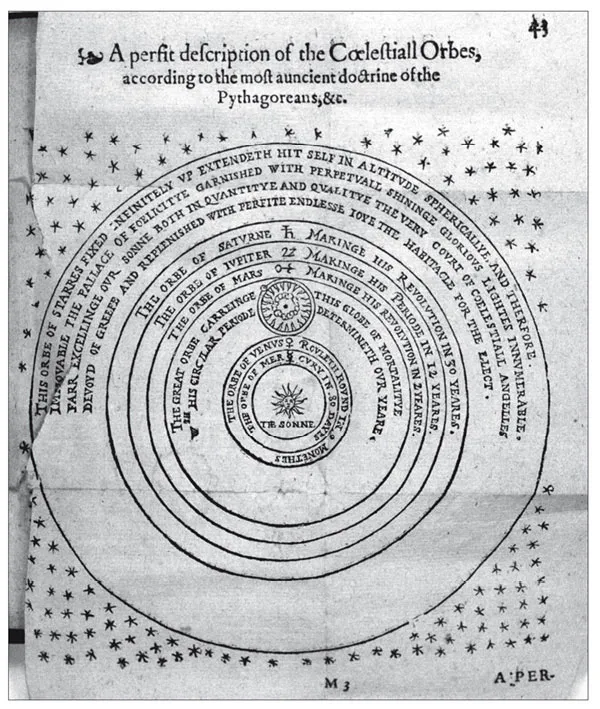 43
A perfit description of the Cœlestiall Orbes,
according to the most auncient doctrine of the
Pythagoreans, &c.
THIS ORBE OF STARRES FIXED INFINITELY VP EXTENDETH HIT SELF IN ALTITVDE SPHERICALLYE, AND THEREFORE
IMMOVABLE THE PALLACE OF FOELICITYE GARNISHED WITH PERPETVALL SHININGE GLORIOVS LIGHTES INNVMERABLE.
FARR EXCELLINGE OVR SONNE BOTH IN QVANTITYE AND QVALITYE THE VERY COVRT OF COELESTIALL ANGELLES
DEVOYD OF GREEFE AND REPLENISHED WITH PERFITE ENDLESSE IOYE THE HABITACLE FOR THE ELECT.
THE ORBE OF SATVRNE ♄ MAKINGE HIS REVOLVTION IN 30 YEARES.
THE ORBE OF IVPITER ♃ MAKINGE HIS PERIODE IN 12 YEARES.
THE ORBE OF MARS ♂ MAKINGE HIS REVOLVTION IN 2 YEARES.
THE GREAT ORBE CARREINGE THIS GLOBE OF MORTALITYE
HIS CIRCVLAR PERIODE DETERMINETH OVR YEARE.
THE ORBE OF VENVS ♀ ROVLETH ROVND IN 9 MONETHES
THE ORBE OF MERCVRY IN 80 DAYES
THE SONNE
M 3
A PER-